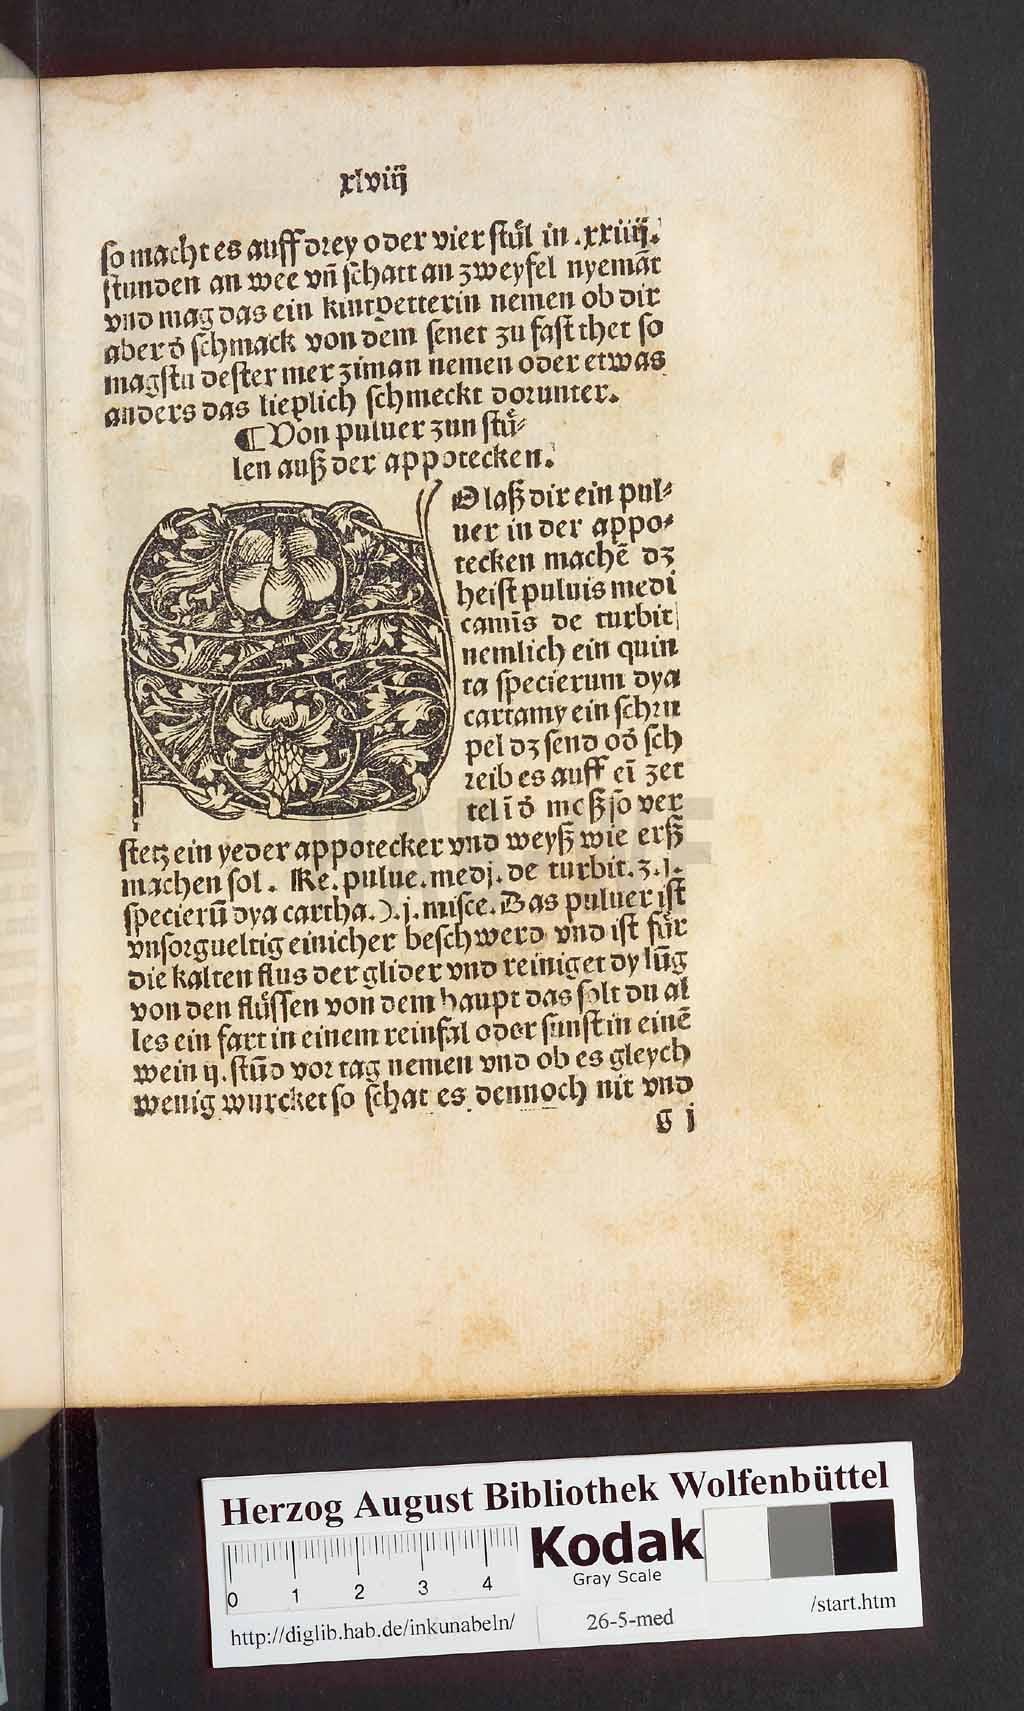 xlviij
so macht es auff drey oder vier stůl in .xxiiij.
stunden an wee vñ schatt an zweyfel nyemãt
vnd mag das ein kintpetterin nemen ob dir
aber ď schmack von dem senet zu fast thet so
magstu dester mer ziman nemen oder etwas
anders das lieplich schmeckt dorunter.
¶ Von puluer zun stů⸗
len auß der appotecken.
SO laß dir ein pul⸗
uer in der appo⸗
tecken machẽ dz
heist puluis medi
camīs de turbit
nemlich ein quin
ta specierum dya
cartamy ein schru
pel dz send oď sch
reib es auff eī zet
tel ī ď meß so ver
stetz ein yeder appotecker vnd weyß wie erß
machen sol. Re. pulue. medj. de turbit. ʒ. j.
specierũ dya cartha. ℈. j. misce. Das puluer ist
vnsorgueltig einicher beschwerd vnd ist fůr
die kalten flus der glider vnd reiniget dy lũg
von den flůssen von dem haupt das solt du al
les ein fart in einem reinfal oder sunst in einẽ
wein ij. stũd vor tag nemen vnd ob es gleych
wenig wurcket so schat es dennoch nit vnd
g j
Herzog August Bibliothek Wolfenbüttel
Kodak
Gray Scale
0 1 2 3 4
http://diglib.hab.de/inkunabeln/
26-5-med
/start.htm